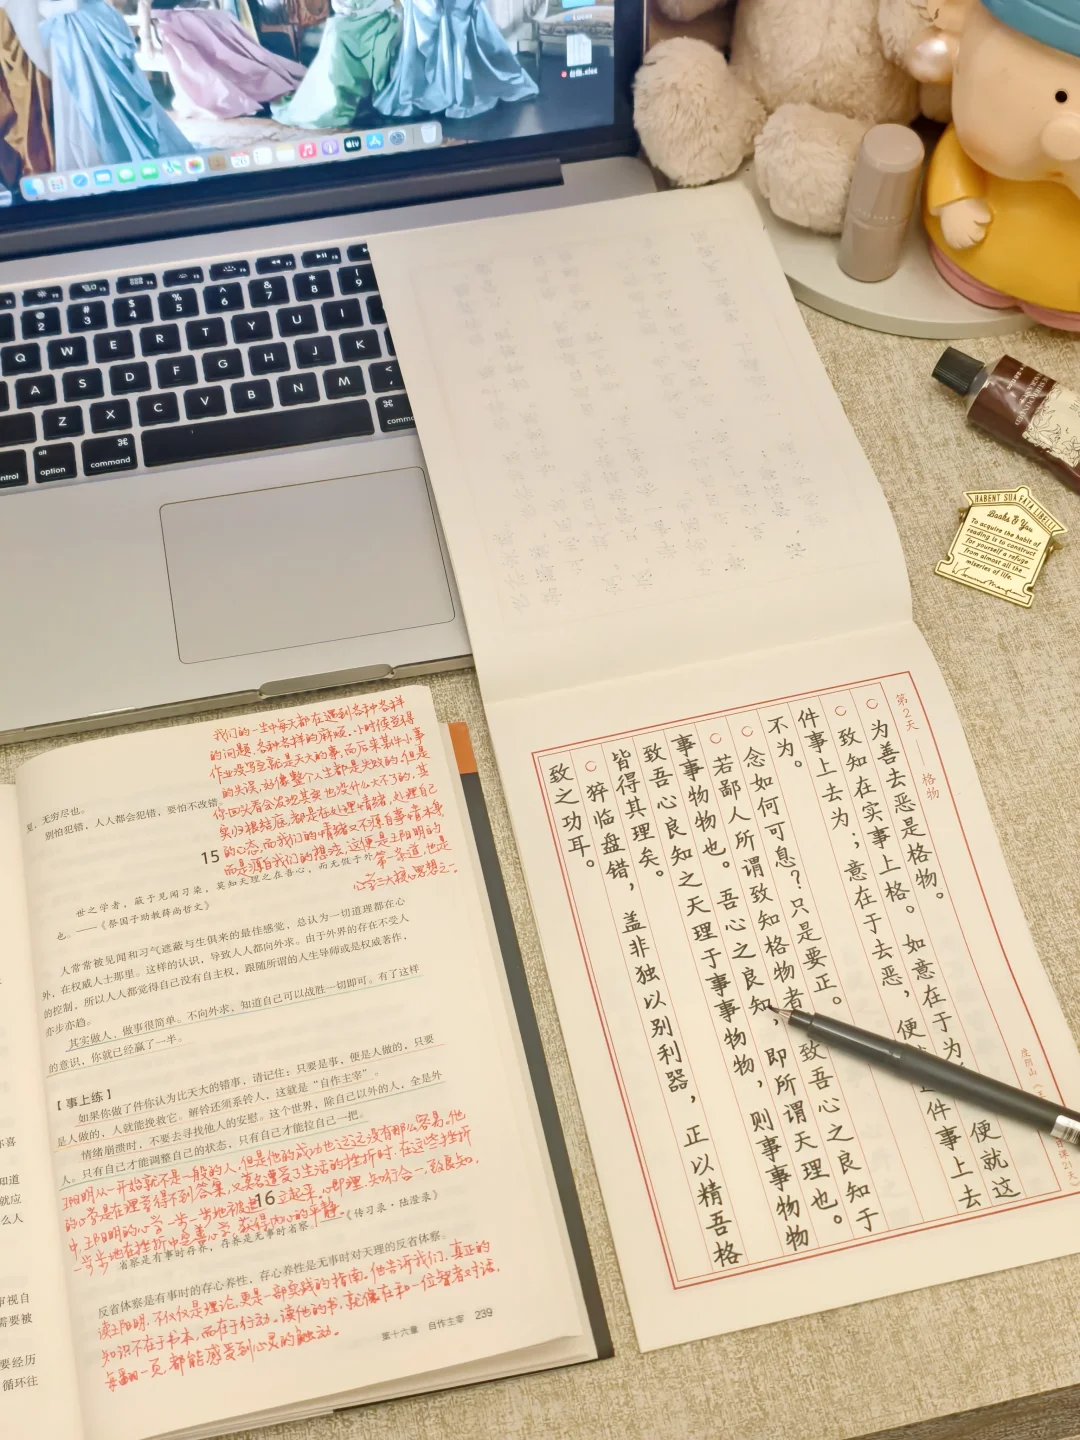 我们的一生中每天都在遇到各种各样
的问题.各种各样的麻烦.小时候觉得
作业没写完就是天大的事,而后来某件小事
的失误,好像整个人生都是失败的,但是
你回头看会发现其实也没什么大不了的,其
实归根结底,都是在处理情绪,处理自己
的心态,而我们的情绪又不源自事情本身
而是源自我们的想法,这便是王阳明的
第一条道,也是
心学三大核心思想之一.
见,无穷尽也。
别怕犯错,人人都会犯错,要怕不改错。
15
世之学者,蔽于见闻习染,莫知天理之在吾心,而无假于外
也。——《祭国子助教薛尚哲文》
人常常被见闻和习气遮蔽与生俱来的最佳感觉,总认为一切道理都在心
外,在权威人士那里。这样的认识,导致人人都向外求。由于外界的存在不受人
的控制,所以人人都觉得自己没有自主权,跟随所谓的人生导师或是权威著作,
亦步亦趋。
其实做人、做事很简单。不向外求,知道自己可以战胜一切即可。有了这样
的意识,你就已经赢了一半。
【事上练】
如果你做了件你认为比天大的错事,请记住:只要是事,便是人做的,只要
是人做的,人就能挽救它。解铃还须系铃人,这就是“自作主宰”。
情绪崩溃时,不要去寻找他人的安慰。这个世界,除自己以外的人,全是外
人。只有自己才能调整自己的状态,只有自己才能拉自己一把。
王阳明从一开始就不是一般的人,但是他的成功也远远没有那么容易,他
的心学是在理学得不到答案,又莫名遭受了生活的挫折时,在这些挫折
中,王阳明的心学一步一步地被建立起来,心即理,知行合一,致良知,
一步步地在挫折中完善心学,获得内心的平静。
16
省察是有事时存养,存养是无事时省察。——《传习录·陆澄录》
反省体察是有事时的存心养性,存心养性是无事时对天理的反省体察。
读王阳明,不仅仅是理论,更是一部实践的指南。他告诉我们,真正的
知识不在于书本,而在于行动。读他的书,就像在和一位智者对话,
每翻一页,都能感受到心灵的触动。
第十六章 自作主宰 239
第2天 格物
为善去恶是格物。
致知在实事上格。如意在于为善,便就这
件事上去为;意在于去恶,便就这件事上去
不为。
念如何可息?只是要正。
若鄙人所谓致知格物者,致吾心之良知于
事事物物也。吾心之良知,即所谓天理也。
致吾心良知之天理于事事物物,则事事物物
皆得其理矣。
猝临盘错,盖非独以别利器,正以精吾格
致之功耳。
HABENT SUA FATA LIBELLI
Books & You
To acquire the habit of
reading is to construct
for yourself a refuge
from almost all the
miseries of life.
Q W E R T Y U I
A S D F G H J K
Z X C V B N M
option command